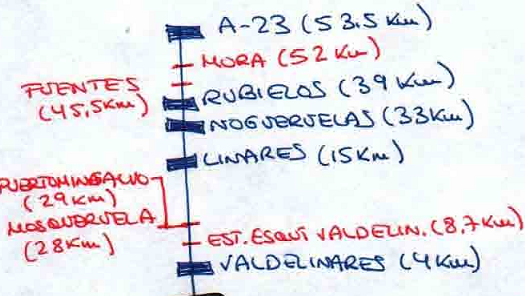 A-23 (53.5 Km)
MORA (52 Km)
FUENTES
(45,5Km)
RUBIELOS (39 Km)
NOGUERUELAS (33Km)
LINARES (15Km)
PUERTOMINGALVO
(29Km)
MOSQUERUELA
(28Km)
EST. ESQUI VALDELIN. (8.7Km)
VALDELINARES (4Km)